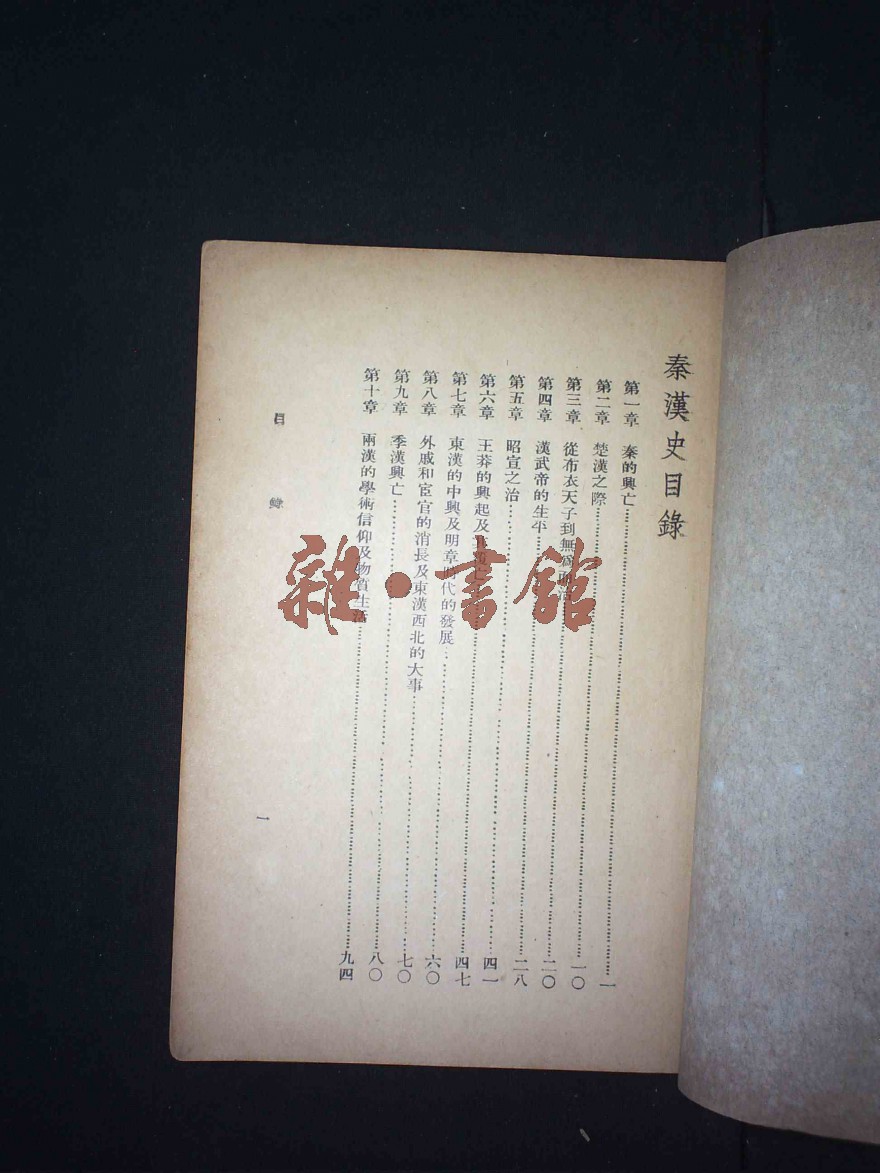 秦漢史目錄
第一章 秦的興亡……一
第二章 楚漢之際……一〇
第三章 從布衣天子到無爲而治……二〇
第四章 漢武帝的生平……二八
第五章 昭宣之治……四一
第六章 王莽的興起及其覆亡……四七
第七章 東漢的中興及明章時代的發展……六〇
第八章 外戚和宦官的消長及東漢西北的大事……七〇
第九章 季漢興亡……八〇
第十章 兩漢的學術信仰及物質生活……九四
目錄
一
雜·書館